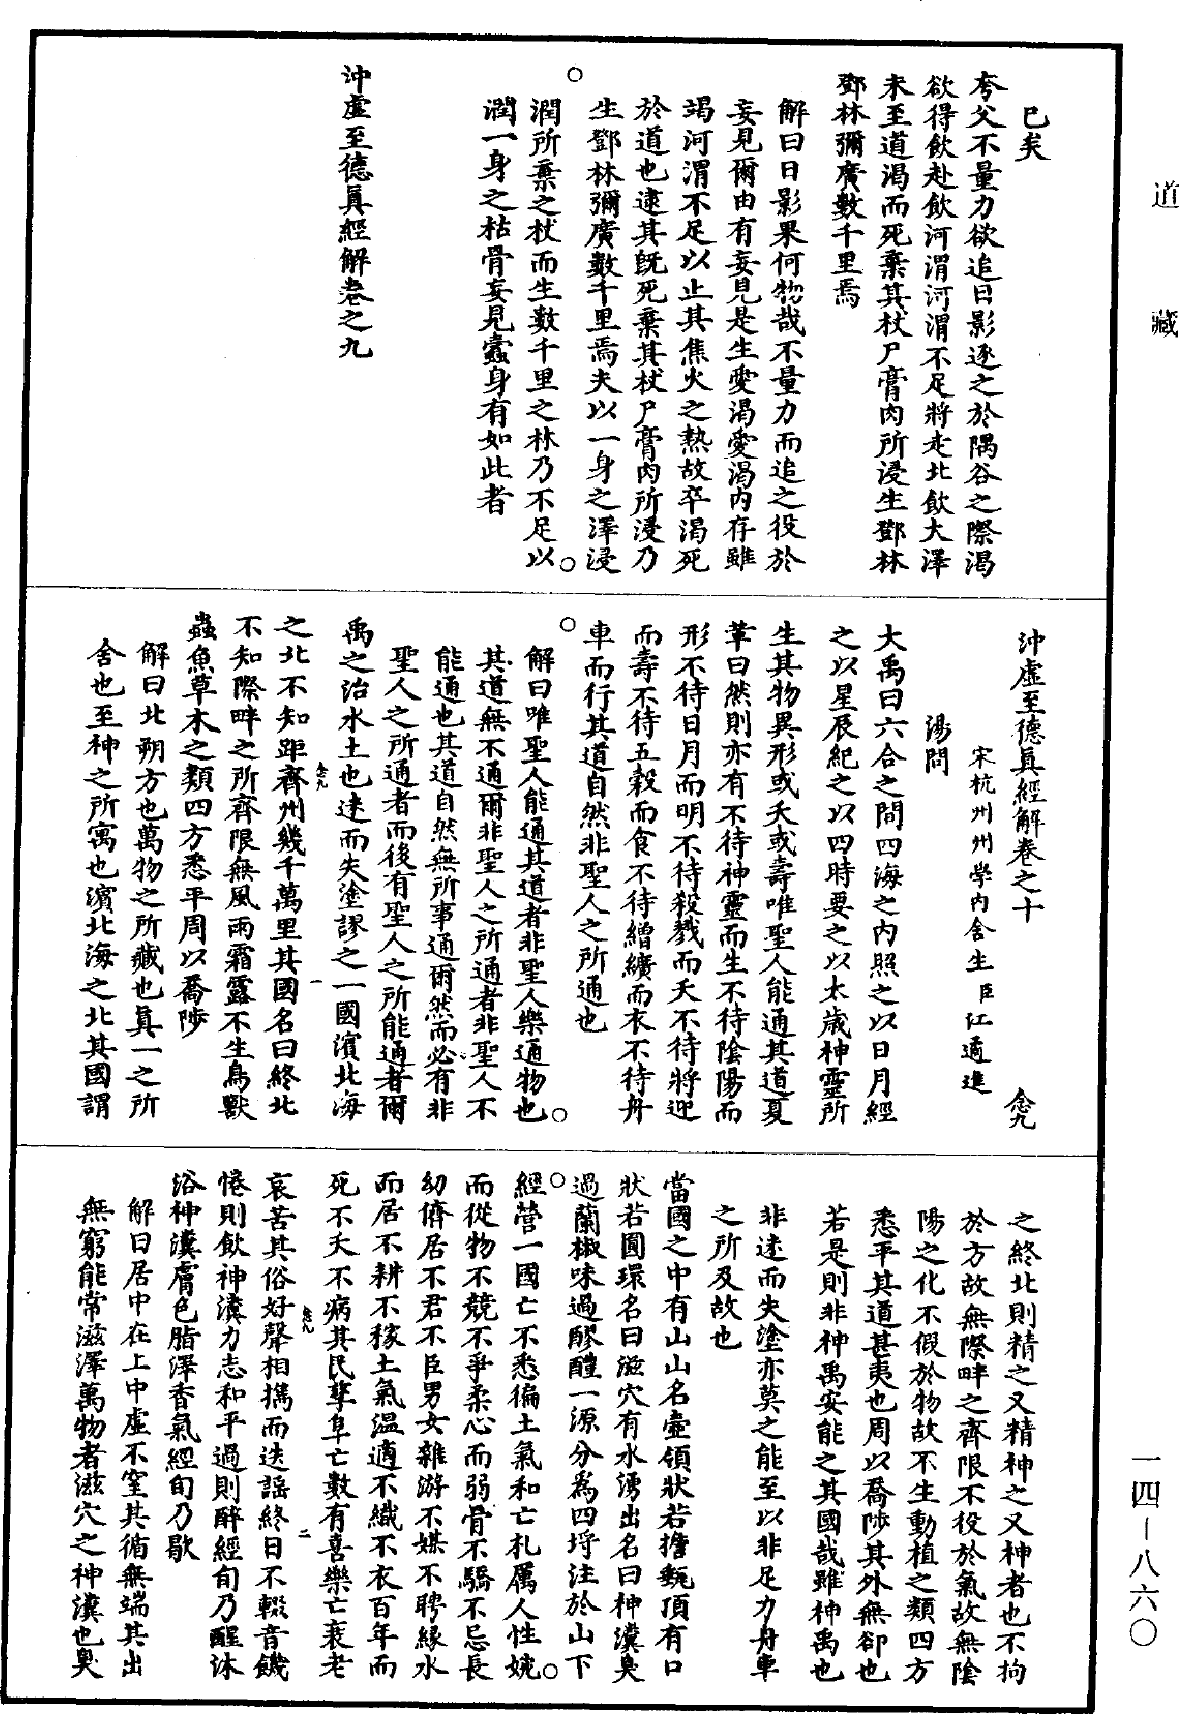 道藏
已矣
夸父不量力欲追日影逐之於隅谷之際渴
欲得飲赴飲河渭河渭不足將走北飲大澤
未至道渴而死棄其杖尸膏肉所浸生鄧林
鄧林彌廣數千里焉
解曰日影果何物哉不量力而追之役於
妄見爾由有妄見是生愛渴愛渴內存雖
竭河渭不足以止其焦火之熱故卒渴死
於道也逮其旣死棄其杖尸膏肉所浸乃
生鄧林彌廣數千里焉夫以一身之澤浸
潤所棄之杖而生數千里之林乃不足以
潤一身之枯骨妄見蠹身有如此者
沖虛至德眞經解卷之九
沖虛至德眞經解卷之十 念九
宋杭州州學內舍生臣江遹進
湯問
大禹曰六合之間四海之內照之以日月經
之以星辰紀之以四時要之以太歲神靈所
生其物異形或夭或壽唯聖人能通其道夏
革曰然則亦有不待神靈而生不待陰陽而
形不待日月而明不待殺戮而夭不待將迎
而壽不待五穀而食不待繒纊而衣不待舟
車而行其道自然非聖人之所通也
解曰唯聖人能通其道者非聖人樂通物也
其道無不通爾非聖人之所通者非聖人不
能通也其道自然無所事通爾然而必有非
聖人之所通者而後有聖人之所能通者爾
禹之治水土也迷而失塗謬之一國濱北海
念九 一
之北不知距齊州幾千萬里其國名曰終北
不知際畔之所齊限無風雨霜露不生鳥獸
蟲魚草木之類四方悉平周以喬陟
解曰北朔方也萬物之所藏也眞一之所
舍也至神之所寓也濱北海之北其國謂
之終北則精之又精神之又神者也不拘
於方故無際畔之齊限不役於氣故無陰
陽之化不假於物故不生動植之類四方
悉平其道甚夷也周以喬陟其外無卻也
若是則非神禹安能之其國哉雖神禹也
非迷而失塗亦莫之能至以非足力舟車
之所及故也
當國之中有山山名壺領狀若擔甀頂有口
狀若圓環名曰滋穴有水湧出名曰神瀵臭
過蘭椒味過醪醴一源分爲四埒注於山下
經營一國亡不悉徧土氣和亡札厲人性婉
而從物不競不爭柔心而弱骨不驕不忌長
幼儕居不君不臣男女雜游不媒不聘緣水
而居不耕不稼土氣溫適不織不衣百年而
死不夭不病其民孳阜亡數有喜樂亡衰老
念九 二
哀苦其俗好聲相攜而迭謠終日不輟音饑
惓則飲神瀵力志和平過則醉經旬乃醒沐
浴神瀵膚色脂澤香氣經旬乃歇
解曰居中在上中虛不窒其循無端其出
無窮能常滋澤萬物者滋穴之神瀵也臭
一四－八六〇